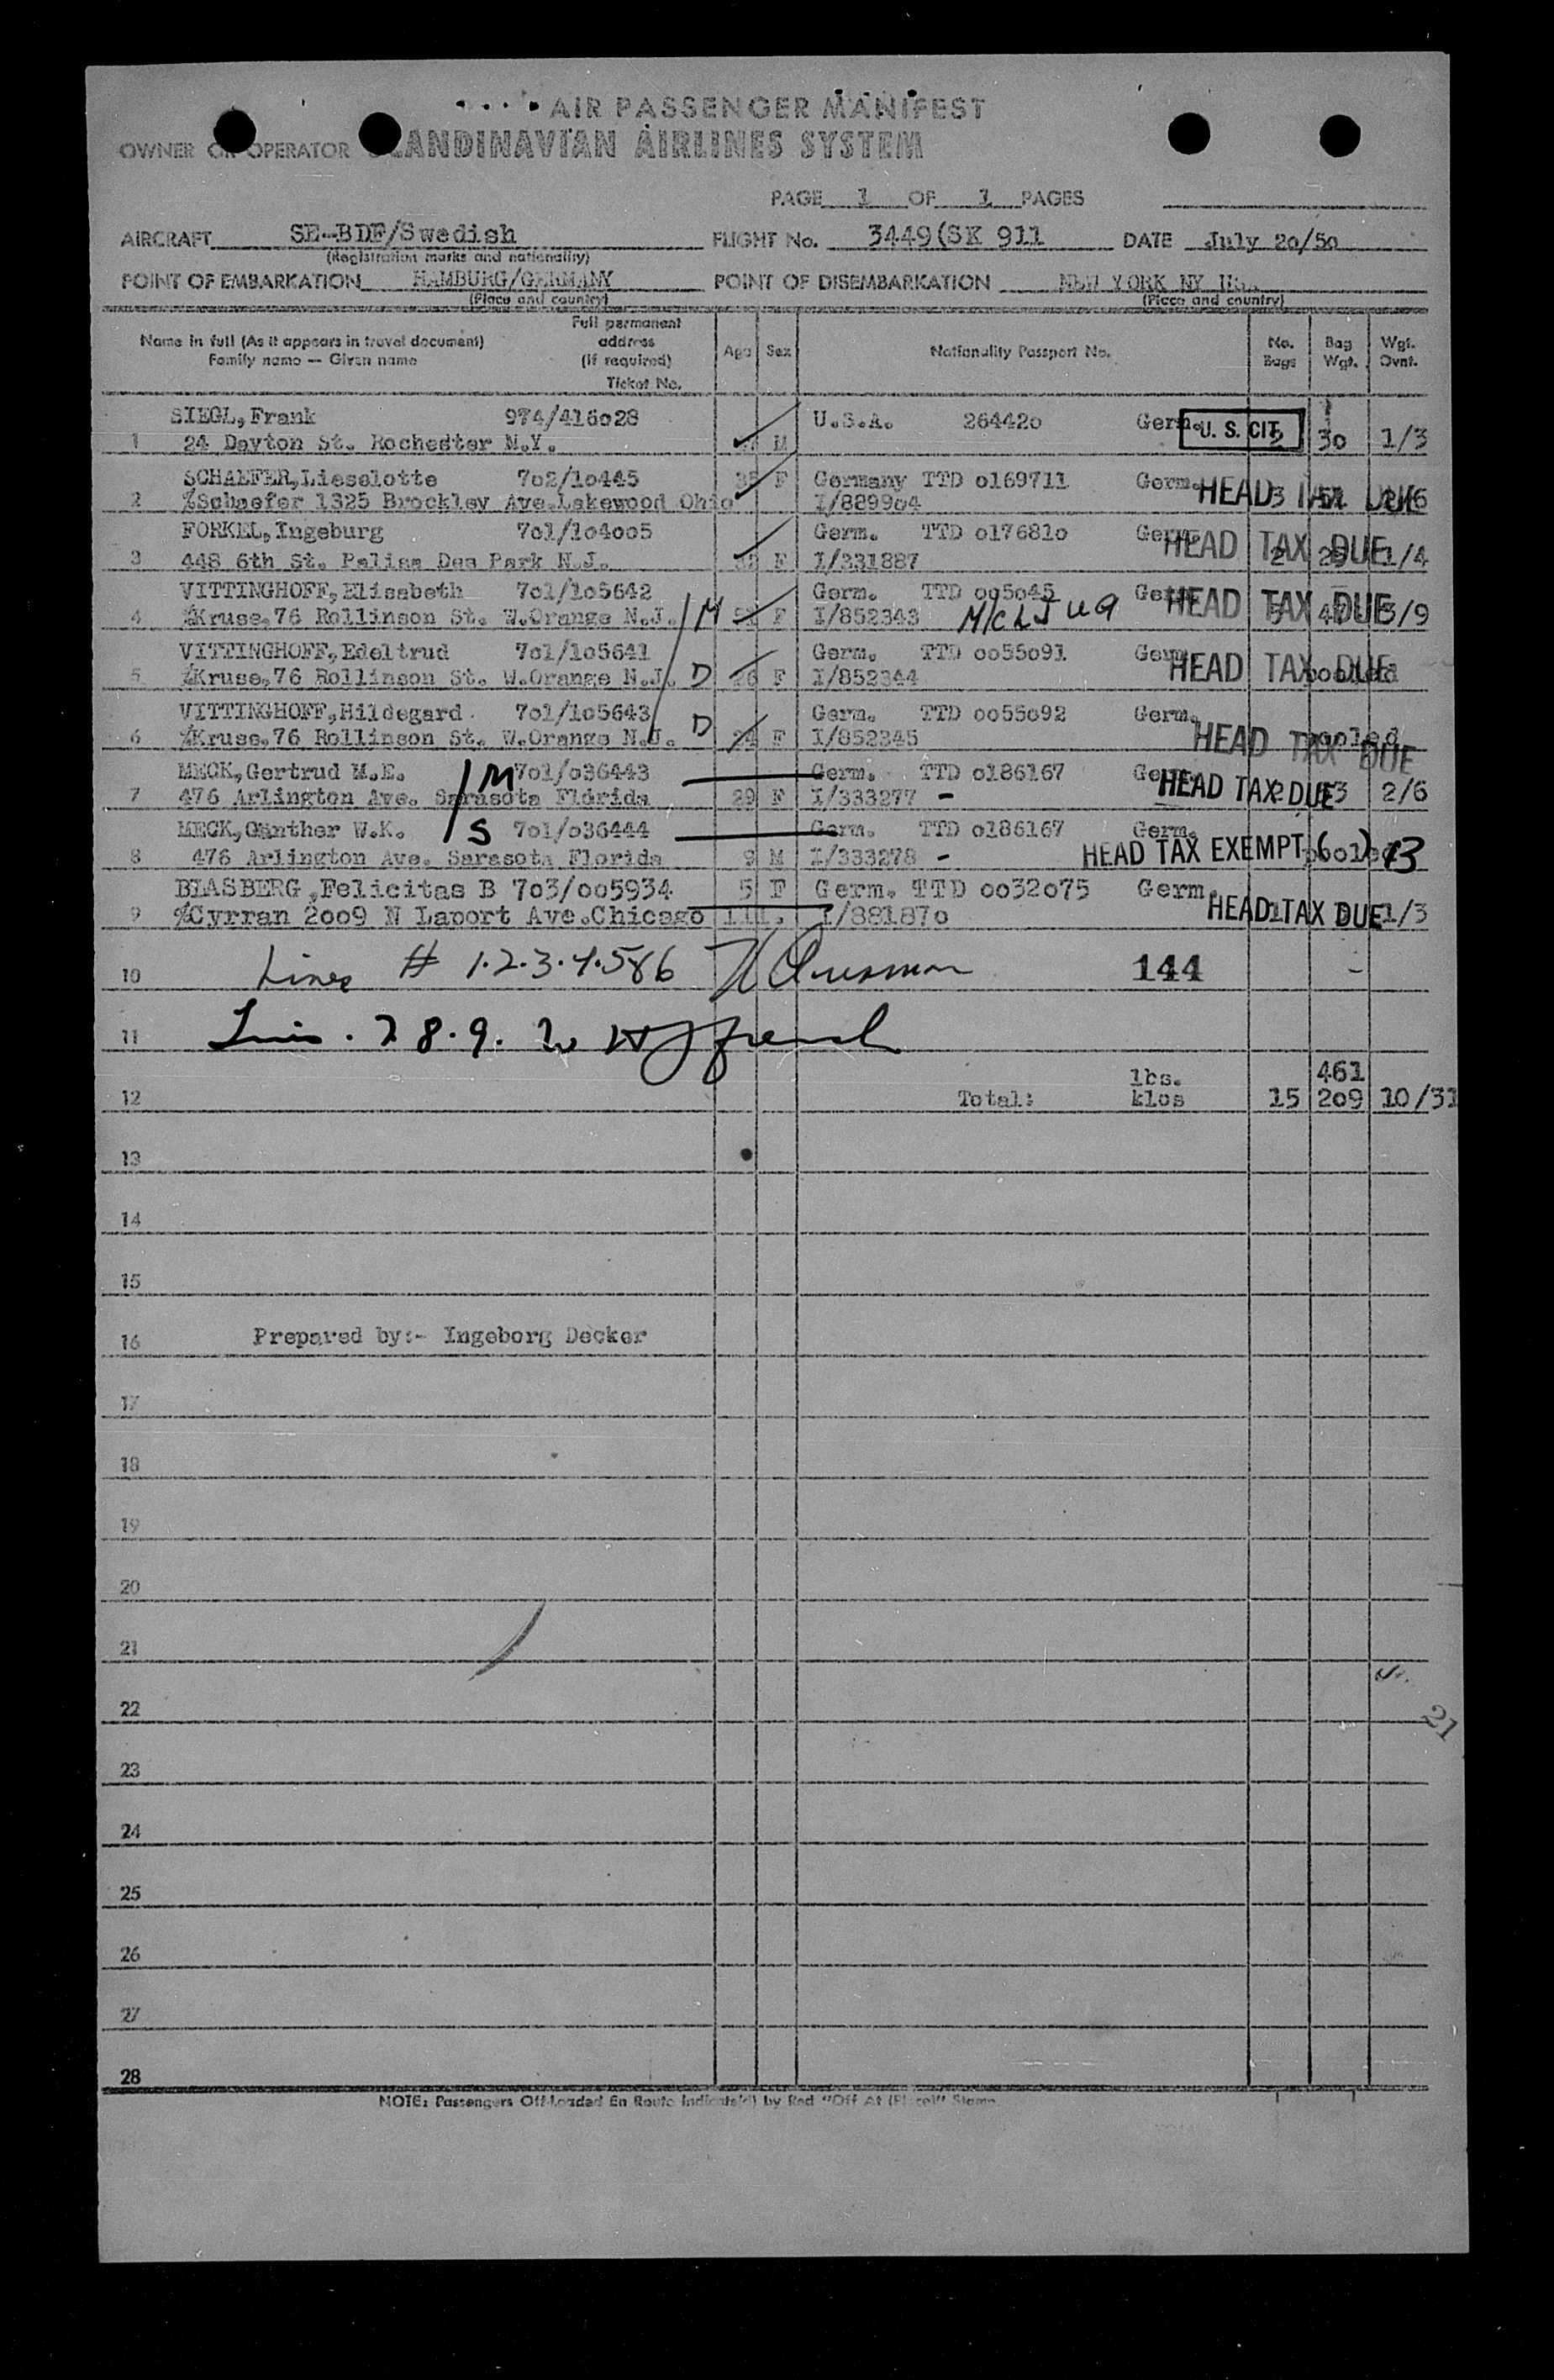 AIR PASSENGER MANIFEST
OWNER OR OPERATOR SCANDINAVIAN AIRLINES SYSTEM
PAGE 1 OF 1 PAGES
AIRCRAFT SE-BDF/Swedish FLIGHT No. 3449(SK 911 DATE July 2o/5o
(Registration marks and nationality)
POINT OF EMBARKATION HAMBURG/GERMANY POINT OF DISEMBARKATION NEW YORK NY
(Place and country) (Place and country)
Name in full (As it appears in travel document) Family name — Given name Full permanent address (if required) Ticket No. Age Sex Nationality Passport No. No. Bags Bag Wgt. Wgt. Ovnt.
SIEGL, Frank 974/416o28 U.S.A. 26442o Germ. U. S. CIT.
1 24 Dayton St. Rochester N.Y. M 3o 1/3
SCHAEFER, Lieselotte 7o2/1o445 F Germany TTD o169711 Germ. HEAD TAX DUE
2 %Schaefer 1325 Brockley Ave.Lakewood Ohio I/8899o4 3
FORKEL, Ingeburg 7o1/1o4oo5 Germ. TTD o17681o Germ. HEAD TAX DUE
3 448 6th St. Palias Des Park N.J. F I/331887 2 1/4
VITTINGHOFF, Elisabeth 7o1/1o5642 Germ. TTD oo5o45 Germ. HEAD TAX DUE
4 %Kruse.76 Rollinson St. W.Orange N.J. M F I/852343 3/9
VITTINGHOFF, Edeltrud 7o1/1o5641 Germ. TTD oo55o91 Germ. HEAD TAX DUE
5 %Kruse.76 Rollinson St. W.Orange N.J. D F I/852344 pooled
VITTINGHOFF, Hildegard 7o1/1o5643 Germ. TTD oo55o92 Germ. HEAD TAX DUE
6 %Kruse.76 Rollinson St. W.Orange N.J. D 24 F I/852345 pooled
MECK, Gertrud M.E. M 7o1/o36443 Germ. TTD o186167 Germ. HEAD TAX DUE
7 476 Arlington Ave. Sarasota Florida 29 F I/333277 - 2 2/6
MECK, Günther W.K. S 7o1/o36444 Germ. TTD o186167 Germ. HEAD TAX EXEMPT ( ) 13
8 476 Arlington Ave. Sarasota Florida 9 M I/333278 - pooled
BIASBERG, Felicitas B 7o3/oo5934 5 F Germ. TTD oo32o75 Germ. HEAD TAX DUE
9 %Cyrran 2oo9 N Laport Ave.Chicago Ill. I/88187o 1 1/3
10 Lines # 1.2.3.4.5&6 144 -
11 7 8.9.
lbs. 461
12 Total: klos 15 2o9 10/31
13
14
15
16 Prepared by:- Ingeborg Decker
17
18
19
20
21
22
21
23
24
25
26
27
28
NOTE: Passengers Off-Loaded En Route Indicated by Red "Off At (Place)" Stamp